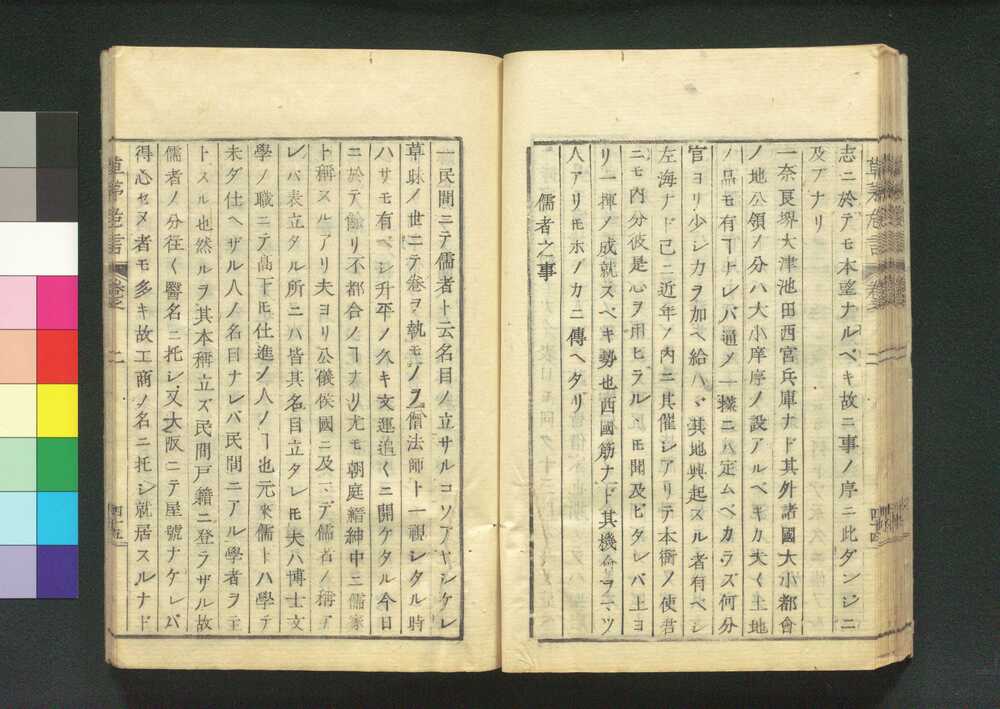 志ニ於テモ本望ナルベキ故ニ事ノ序ニ此ダンジニ
及アナリ
一奈良堺大津池田西宮兵庫ナド其外諸國大小都會
ノ地公領ノ分ハ大小庠序ノ設アルベキカ夫〱土地
ノ品モ有ヿナレバ通メ一様ニハ定ムベカラズ何分
官ヨリ少シカヲ加ヘ給ハヾ其地興起スル者有ベシ
左海ナド已ニ近年ノ内ニ其催シアリテ本衙ノ使君
ニモ内分彼是心ヲ用ヒラルヽ𪜈聞及ビタレバ上ヨ
リ一揮ノ成就スベキ勢也西國筋ナド其機會ヲ一ツ
人アリ𪜈ホノカニ傳ヘタリ
儒者之事
一民間ニテ儒者ト云名目ノ立サルコソアヤシケレ
草昧ノ世ニテ巻ヲ執モノヲ僧法師ト一視シタル時
ハサモ有ベシ升平ノ久キ文運追〱ニ開ケタル今日
ニ於テ餘リ不都合ノヿナリ尤モ朝庭縉紳中ニ儒家
ト稱スルアリ夫ヨリ公儀侯國ニ及ヘデ儒者ノ稱ア
レバ表立タル所ニハ皆其名目立タレ𪜈夫ハ博士文
學ノ職ニテ髙下𪜈仕進ノ人ノヿ也元來儒トハ學テ
未ダ仕ヘザル人ノ名目ナレバ民間ニアル學者ヲ主
トスル也然ルヲ其本稱立ズ民間戸籍ニ登ラザル故
儒者ノ分往〱醫名ニ托レ又大阪ニテ屋號ナケレバ
得心セヌ者モ多キ故工商ノ名ニ托シ就居スルナド
草茅危言
巻之
二
四十五